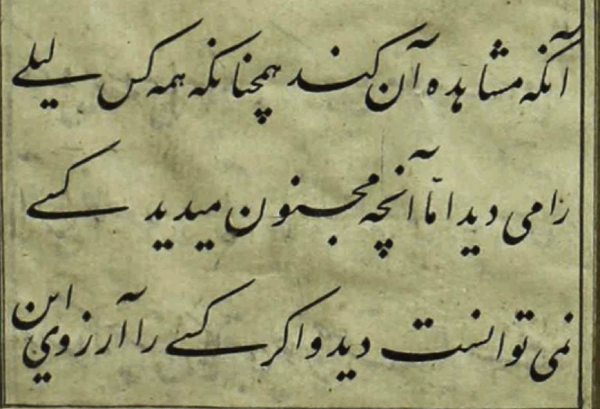 آنکه مشاهده آن کند همچنانکه همه کس لیلے
را می دید اما آنچه مجنون میدید کسے
نمی توانست دید و اکر کسے را آرزوی این